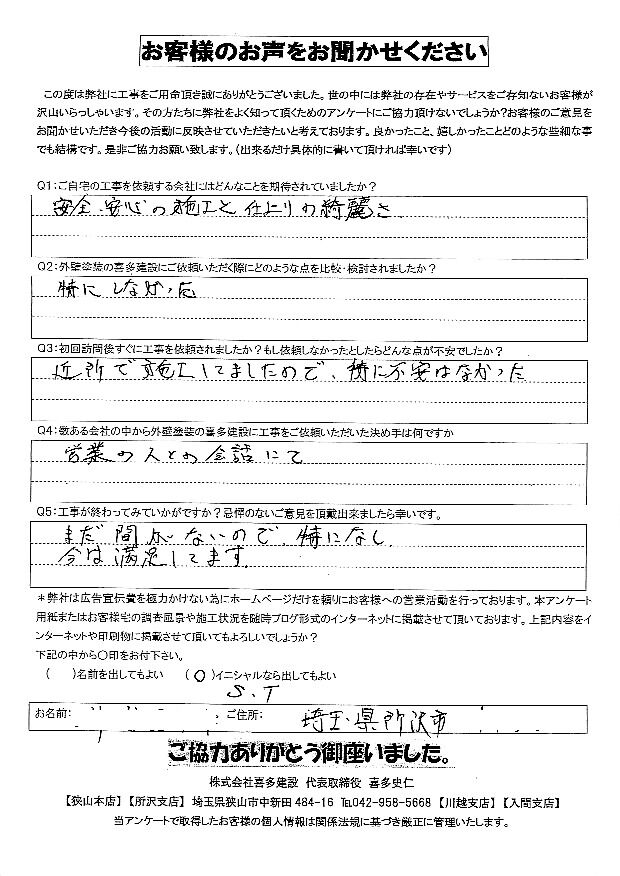 お客様のお声をお聞かせください
この度は弊社に工事をご用命頂き誠にありがとうございました。世の中には弊社の存在やサービスをご存知ないお客様が
沢山いらっしゃいます。その方たちに弊社をよく知って頂くためのアンケートにご協力頂けないでしょうか?お客様のご意見を
お聞かせいただき今後の活動に反映させていただきたいと考えております。良かったこと、嬉しかったことどのような些細な事
でも結構です。是非ご協力お願い致します。(出来るだけ具体的に書いて頂ければ幸いです)
Q1:ご自宅の工事を依頼する会社にはどんなことを期待されていましたか?
安全、安心の施工と仕上りの綺麗さ
Q2:外壁塗装の喜多建設にご依頼いただく際にどのような点を比較・検討されましたか?
特にしなかった
Q3:初回訪問後すぐに工事を依頼されましたか?もし依頼しなかったとしたらどんな点が不安でしたか?
近所で施工してましたので、特に不安はなかった
Q4:数ある会社の中から外壁塗装の喜多建設に工事をご依頼いただいた決め手は何ですか
営業の人との会話にて
Q5:工事が終わってみていかがですか?忌憚のないご意見を頂戴出来ましたら幸いです。
まだ間がないので、特になし
今は満足してます。
*弊社は広告宣伝費を極力かけない為にホームページだけを頼りにお客様への営業活動を行っております。本アンケート
用紙またはお客様宅の調査風景や施工状況を随時ブログ形式のインターネットに掲載させて頂いております。上記内容をイ
ンターネットや印刷物に掲載させて頂いてもよろしいでしょうか?
下記の中から〇印をお付下さい。
( )名前を出してもよい (〇)イニシャルなら出してもよい
S.T
お名前: ご住所: 埼玉県所沢市
ご協力ありがとう御座いました。
株式会社喜多建設 代表取締役 喜多史仁
【狭山本店】【所沢支店】埼玉県狭山市中新田484-16 ℡042-958-5668【川越支店】【入間支店】
当アンケートで取得したお客様の個人情報は関係法規に基づき厳正に管理いたします。